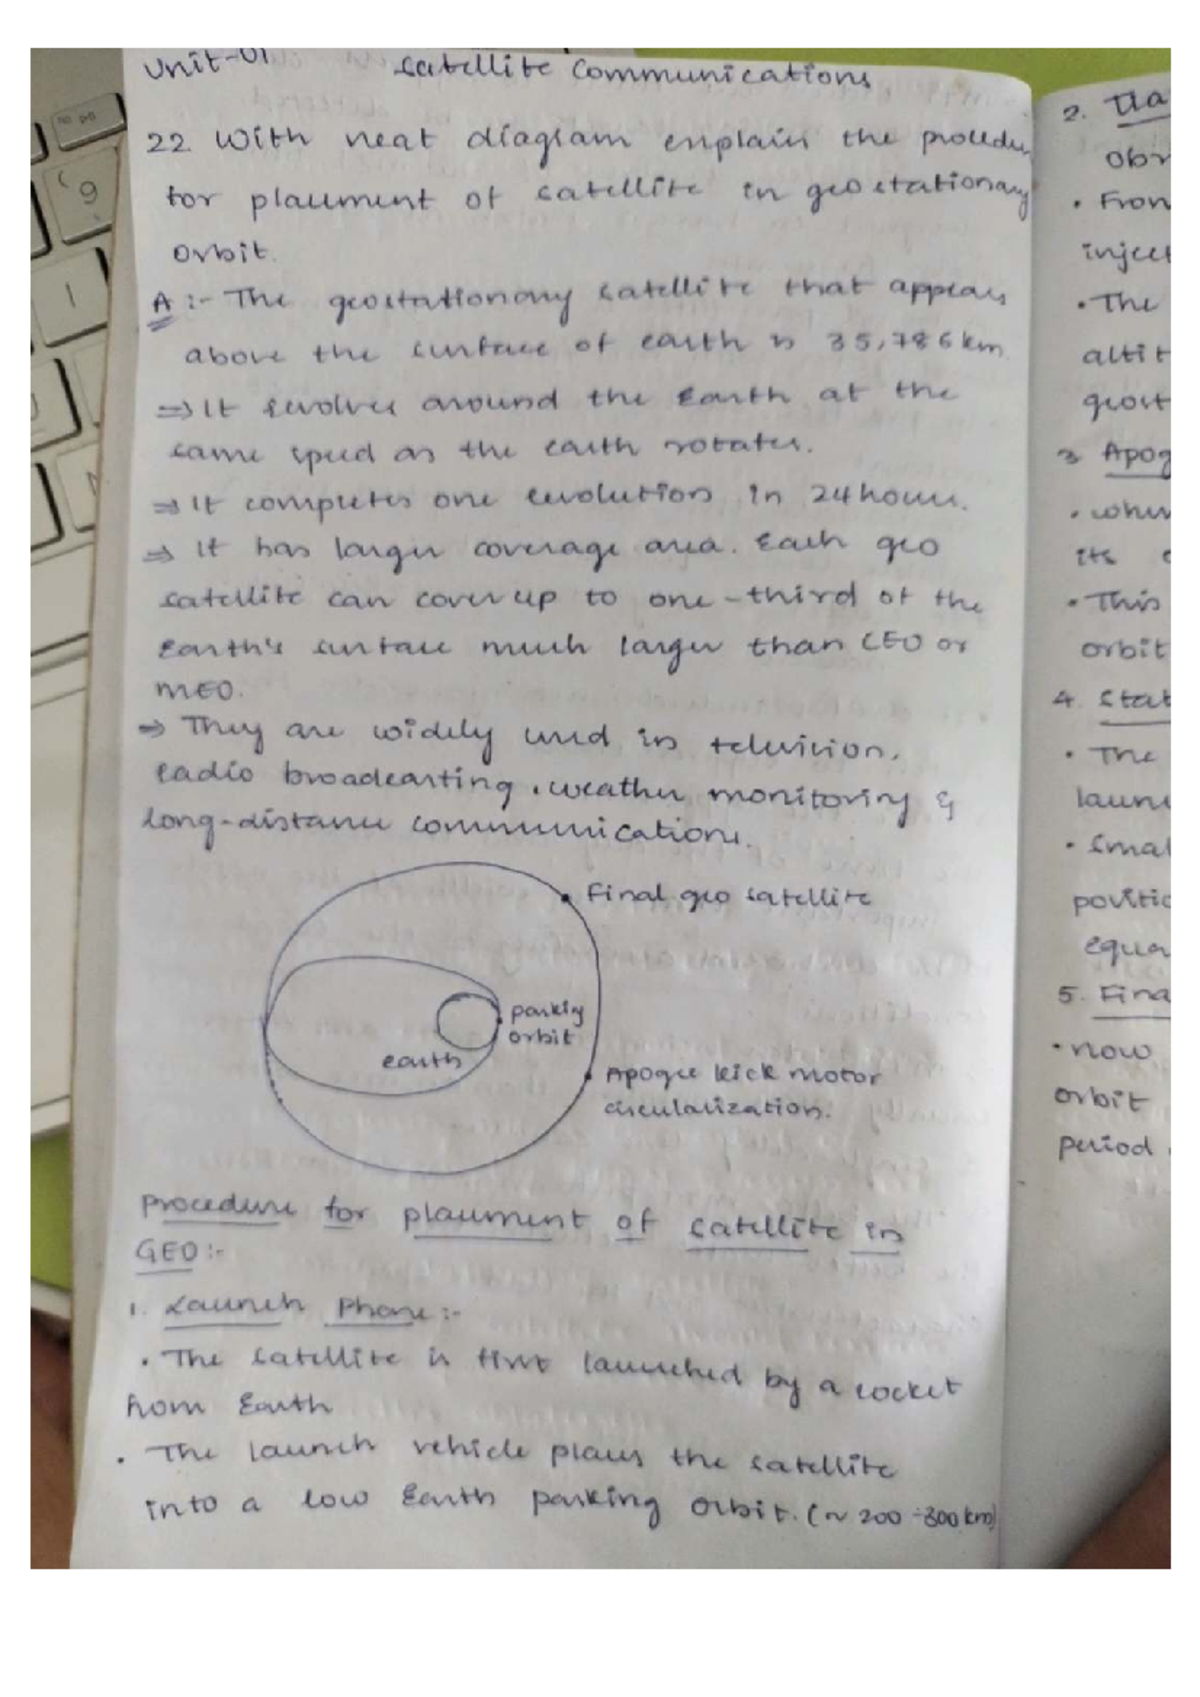 Unit-01 Satellite Communications
22. With neat diagram explain the procedure
for placement of satellite in geostationary
orbit.
A :- The geostationary satellite that appears
above the surface of earth is 35,786 km
⇒ It revolves around the Earth at the
same speed as the earth rotates.
⇒ It completes one revolution in 24 hours.
⇒ It has larger coverage area. Each geo
satellite can cover up to one-third of the
Earth's surface much larger than LEO or
MEO.
⇒ They are widely used in television,
radio broadcasting, weather monitoring &
long-distance communications.
Final geo satellite
parking
orbit
earth
Apogee kick motor
circularization.
Procedure for placement of satellite in
GEO :-
1. Launch Phase :-
• The satellite is first launched by a rocket
from Earth
• The launch vehicle places the satellite
into a low Earth parking orbit. (~ 200-300 km)
2. Tra
obr
• From
inject
• The
altit
geost
3. Apog
• when
its
• This
orbit
4. Stat
• The
launc
• Smal
positio
equa
5. Fina
• now
orbit
period.